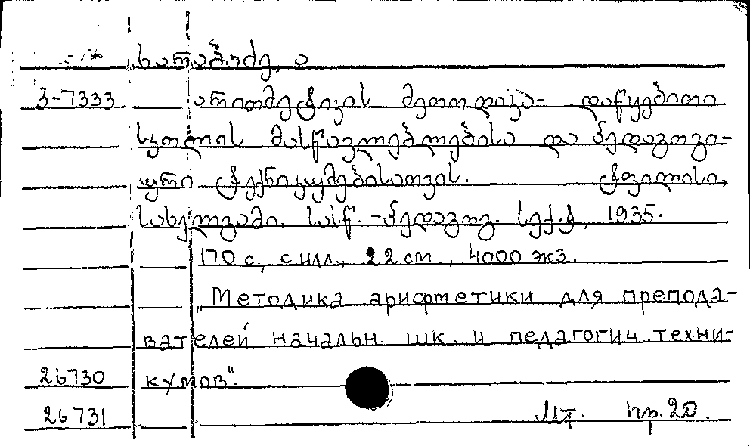 ხარაბაძე, ა
3-7333 არითმეტიკის მეთოდიკა- დაწყებითი
სკოლის მასწავლებლებისა და პედაგოგი-
ური ტექნიკუმებისათვის. ტფილისი,
სახელგამი, სასწ.-პედაგოგ. სექტ., 1935.
170 с, с илл., 22 см, 4000 экз.
„Методика арифметики для препода-
вателей начальн. шк. и педагогич. техни-
26730 кумов".
26731 Мт. пр. 20.